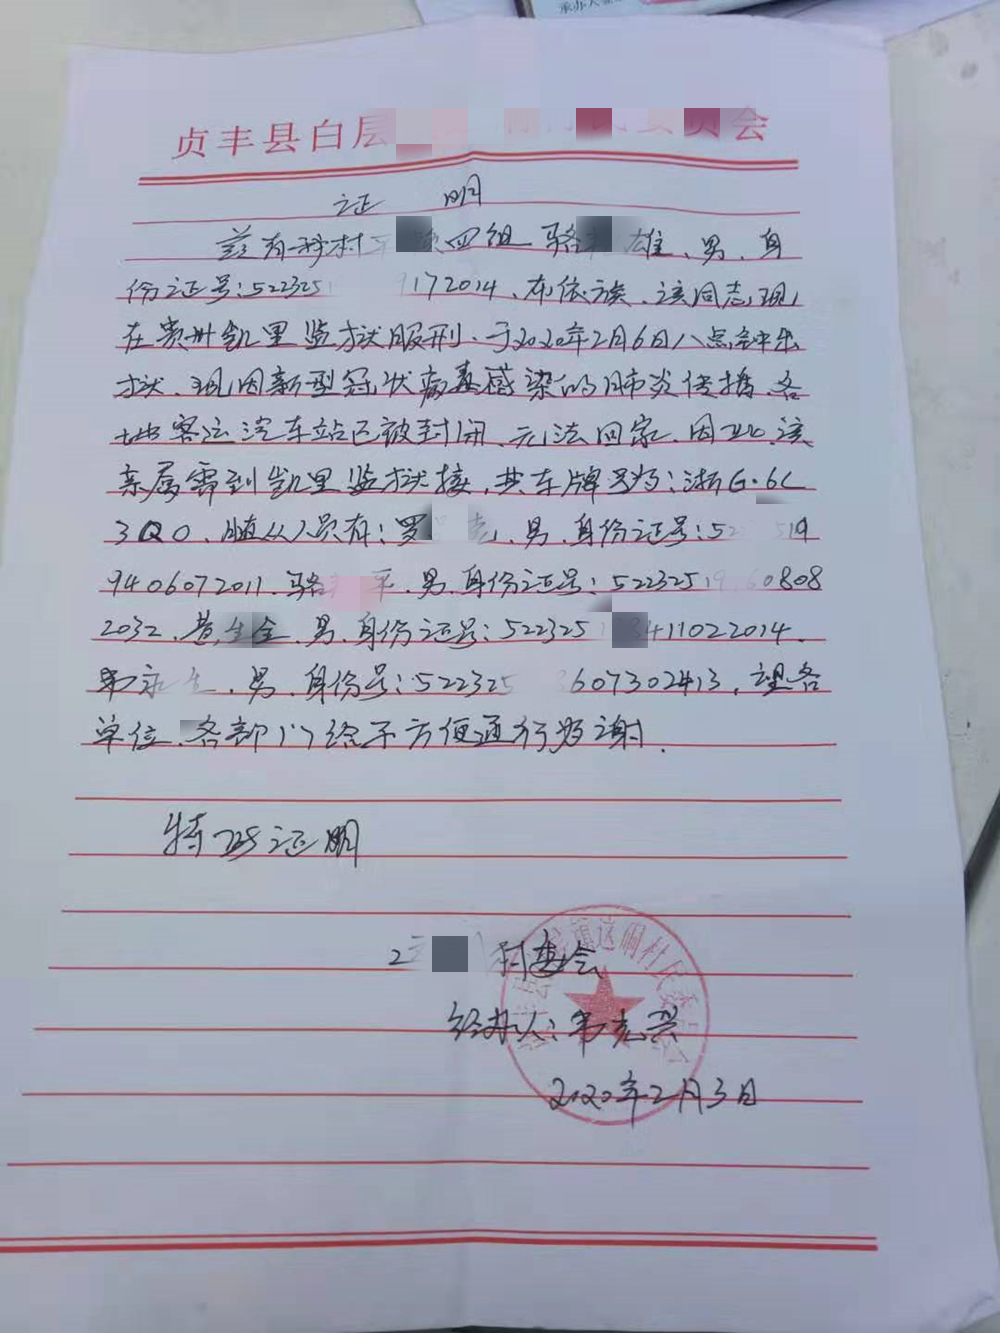 承办人
贞丰县白层 会
证 明
兹有我村 四组 骆 雄、男、身
份证号:522325 9172014、布依族、该同志现
在贵州凯里监狱服刑、于2020年2月6日八点钟出
狱、现因新型冠状病毒感染的肺炎传播、各
地客运汽车站已被封闭、无法回家、因此、该
亲属需到凯里监狱接,其车牌号为:浙G·6C
3Q0、随从人员有:罗 、男、身份证号:52 19
9406072011、骆 平、男、身份证号:522325 60808
2032、 、男、身份证号:522325 411022014、
韦永生、男、身份号:522325 607302413,望各
单位、各部门给予方便通行为谢、
特此证明
村委会
经办人:韦
2020年2月3日